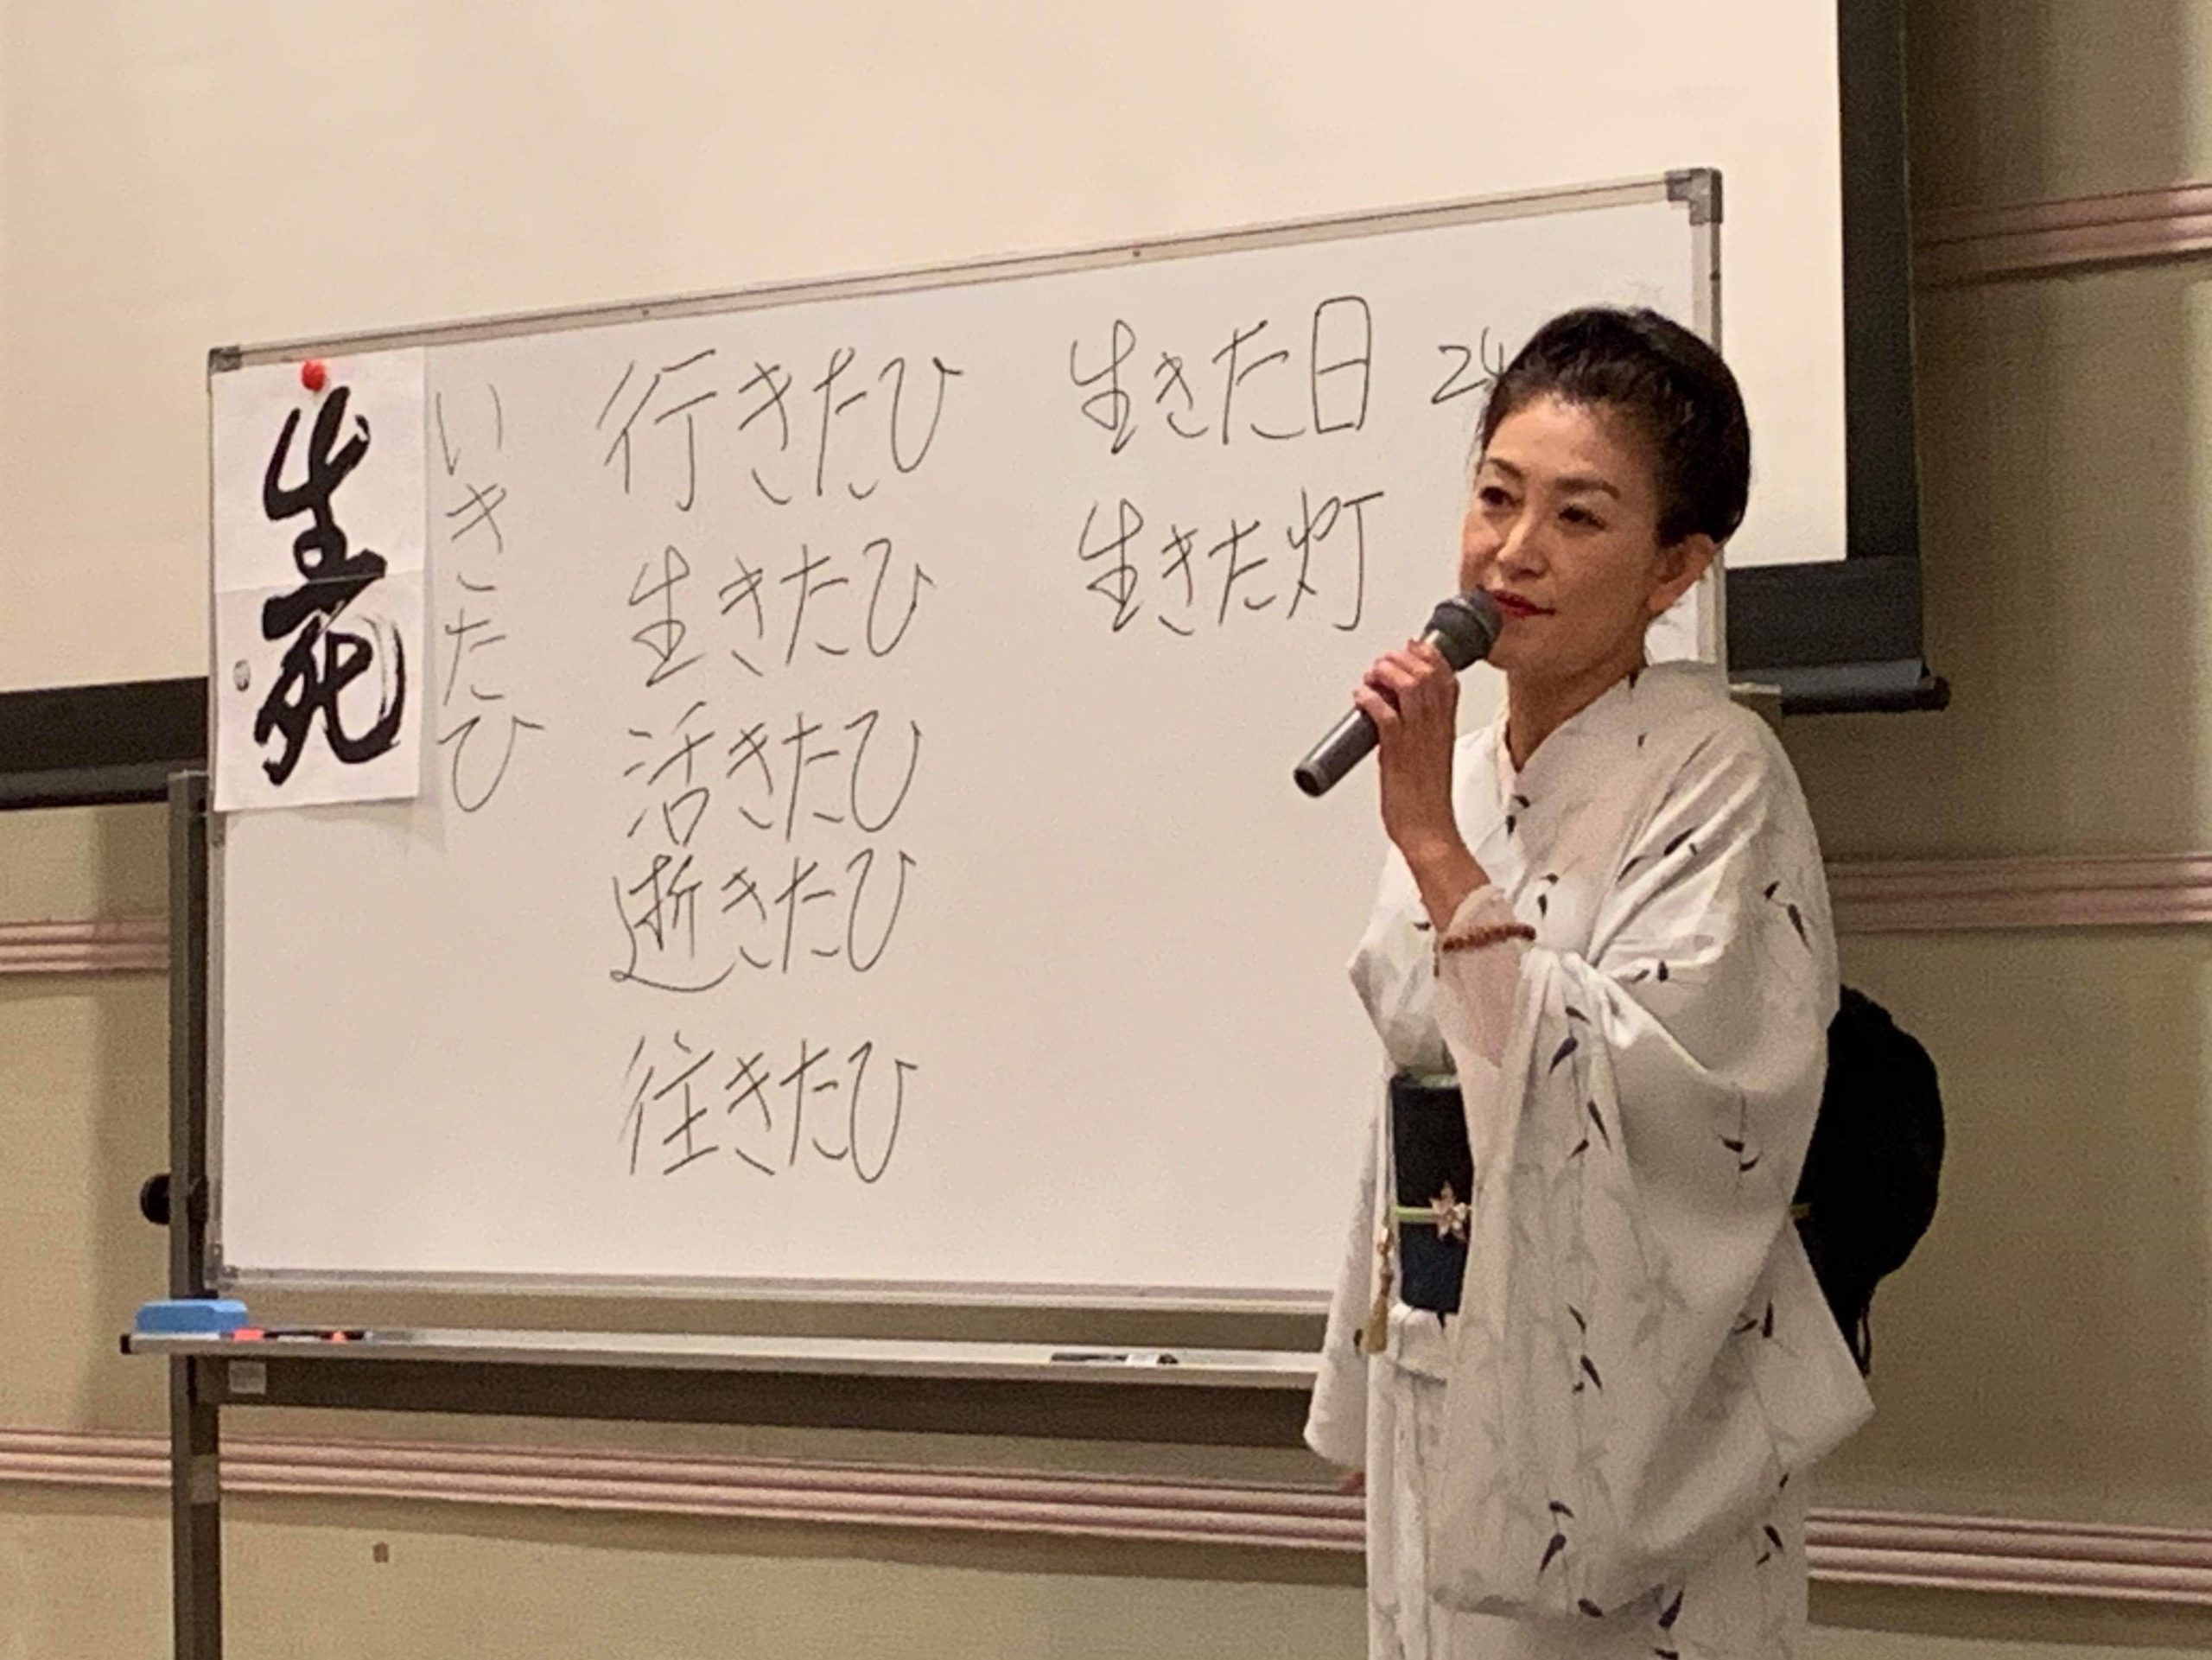 生死
いきたひ
行きたひ
生きたひ
活きたひ
逝きたひ
往きたひ
生きた日 24
生きた灯